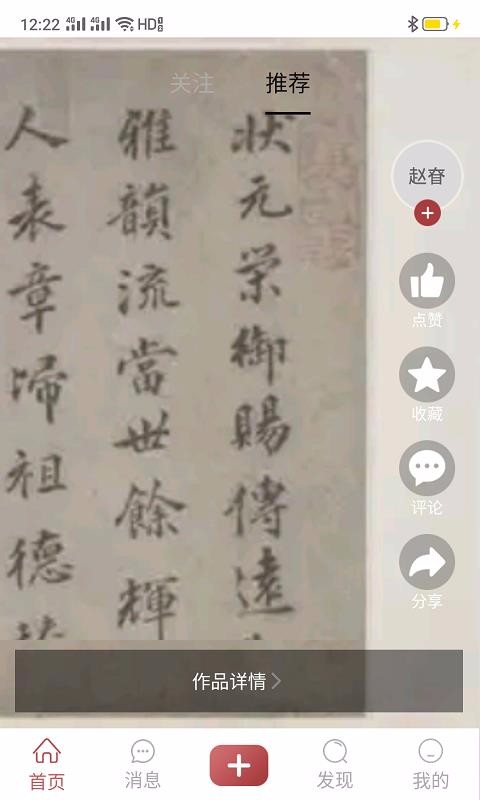 12:22
4G 4G HD
关注
推荐
赵眘
点赞
收藏
评论
分享
状元荣御赐传远
雅韵流當世餘輝
人表章歸祖德
作品详情
首页
消息
发现
我的